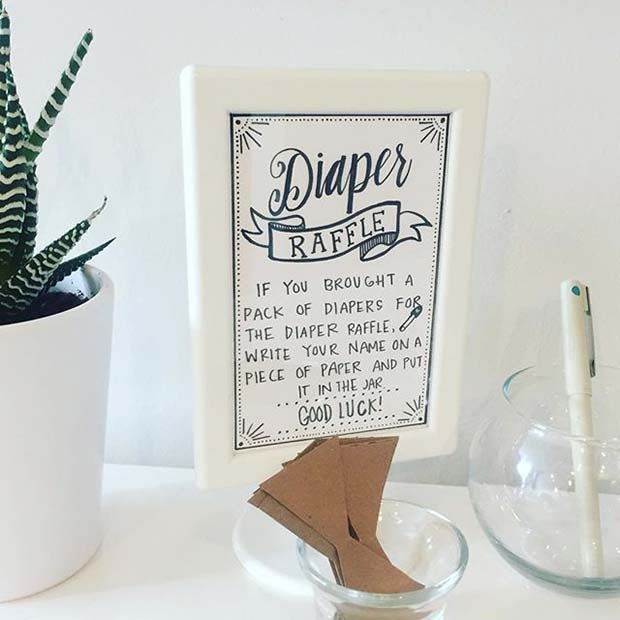 Diaper
RAFFLE
IF YOU BROUGHT A
PACK OF DIAPERS FOR
THE DIAPER RAFFLE,
WRITE YOUR NAME ON A
PIECE OF PAPER AND PUT
IT IN THE JAR...
GOOD LUCK!